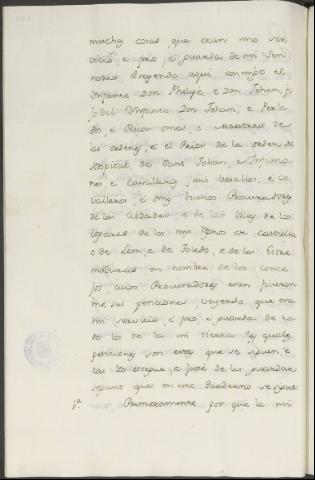 muchas cosas, que eran mio ser
vicio, e pro, e guarda de mi Sen
norio. Seyendo aqui conmigo el
Infante Don Phelipe, e Don Johan, fi
jo del Infante Don Johan, e Perla
dos, e Ricos omes, e Maestres de
las ordenes, e el Prior de la orden del
Hospital de Sant Johan, e Infanzo
nes, e Cavalleros, mis vasallos, e ca
valleros, e omes buenos Procuradores
de las Cibdades, e de las Villas de los
logares de los mis Regnos de Castiella
e de Leon, e de Toledo, e de las Estre
maduras en nombre de los conce
jos cuios Procuradores eran ficieron
me sus peticiones veyendo, que era
mi servicio, e pro, e guarda de to
dos los de la mi tierra las quales
peticiones son estas que se siguen, e
las Yo otorgue, e jure de las guardar
segunt que en este Quaderno se sigue
1ª Primeramente por que la mi